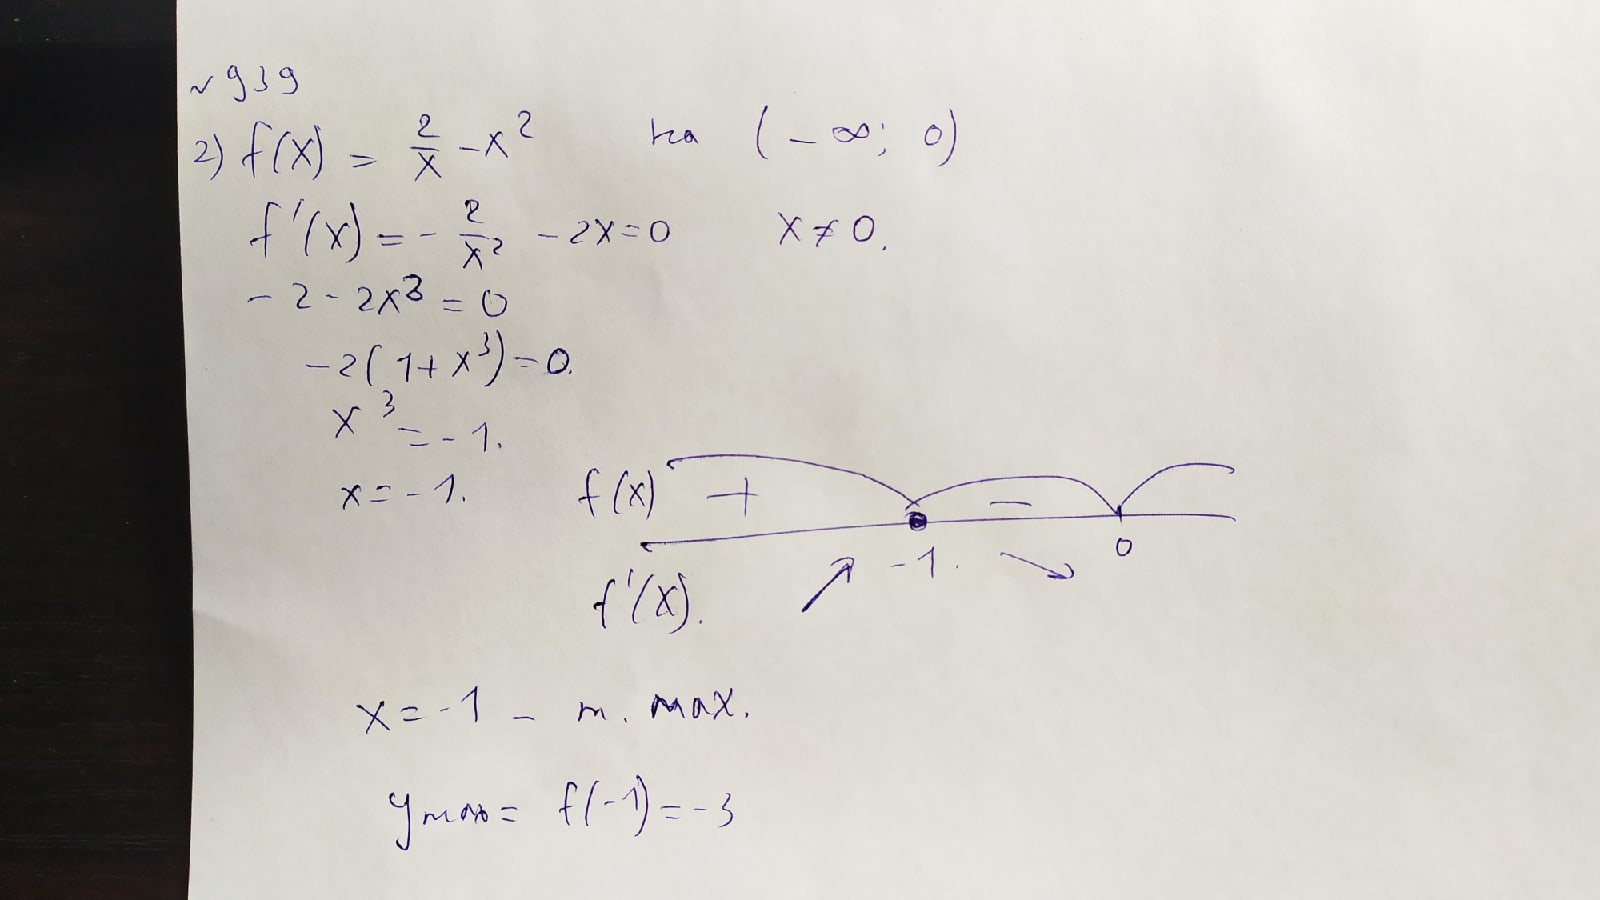 № 939
2) f(x) = 2/x - x² на (-∞; 0)
f'(x) = - 2/x² - 2x = 0 x ≠ 0.
- 2 - 2x³ = 0
-2(1 + x³) = 0.
x³ = -1.
x = -1.
f(x) + -
-1. 0
f'(x).
x = -1 - т. max.
y max = f(-1) = -3